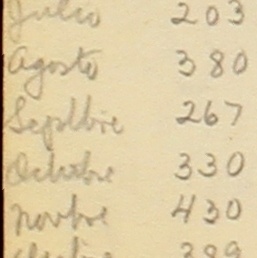 Julio 203
Agosto 380
Sepbbre 267
Octubre 330
Novbre 430
389